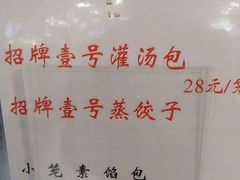 招牌壹号灌汤包
28元/笼
招牌壹号蒸饺子
小笼素馅包